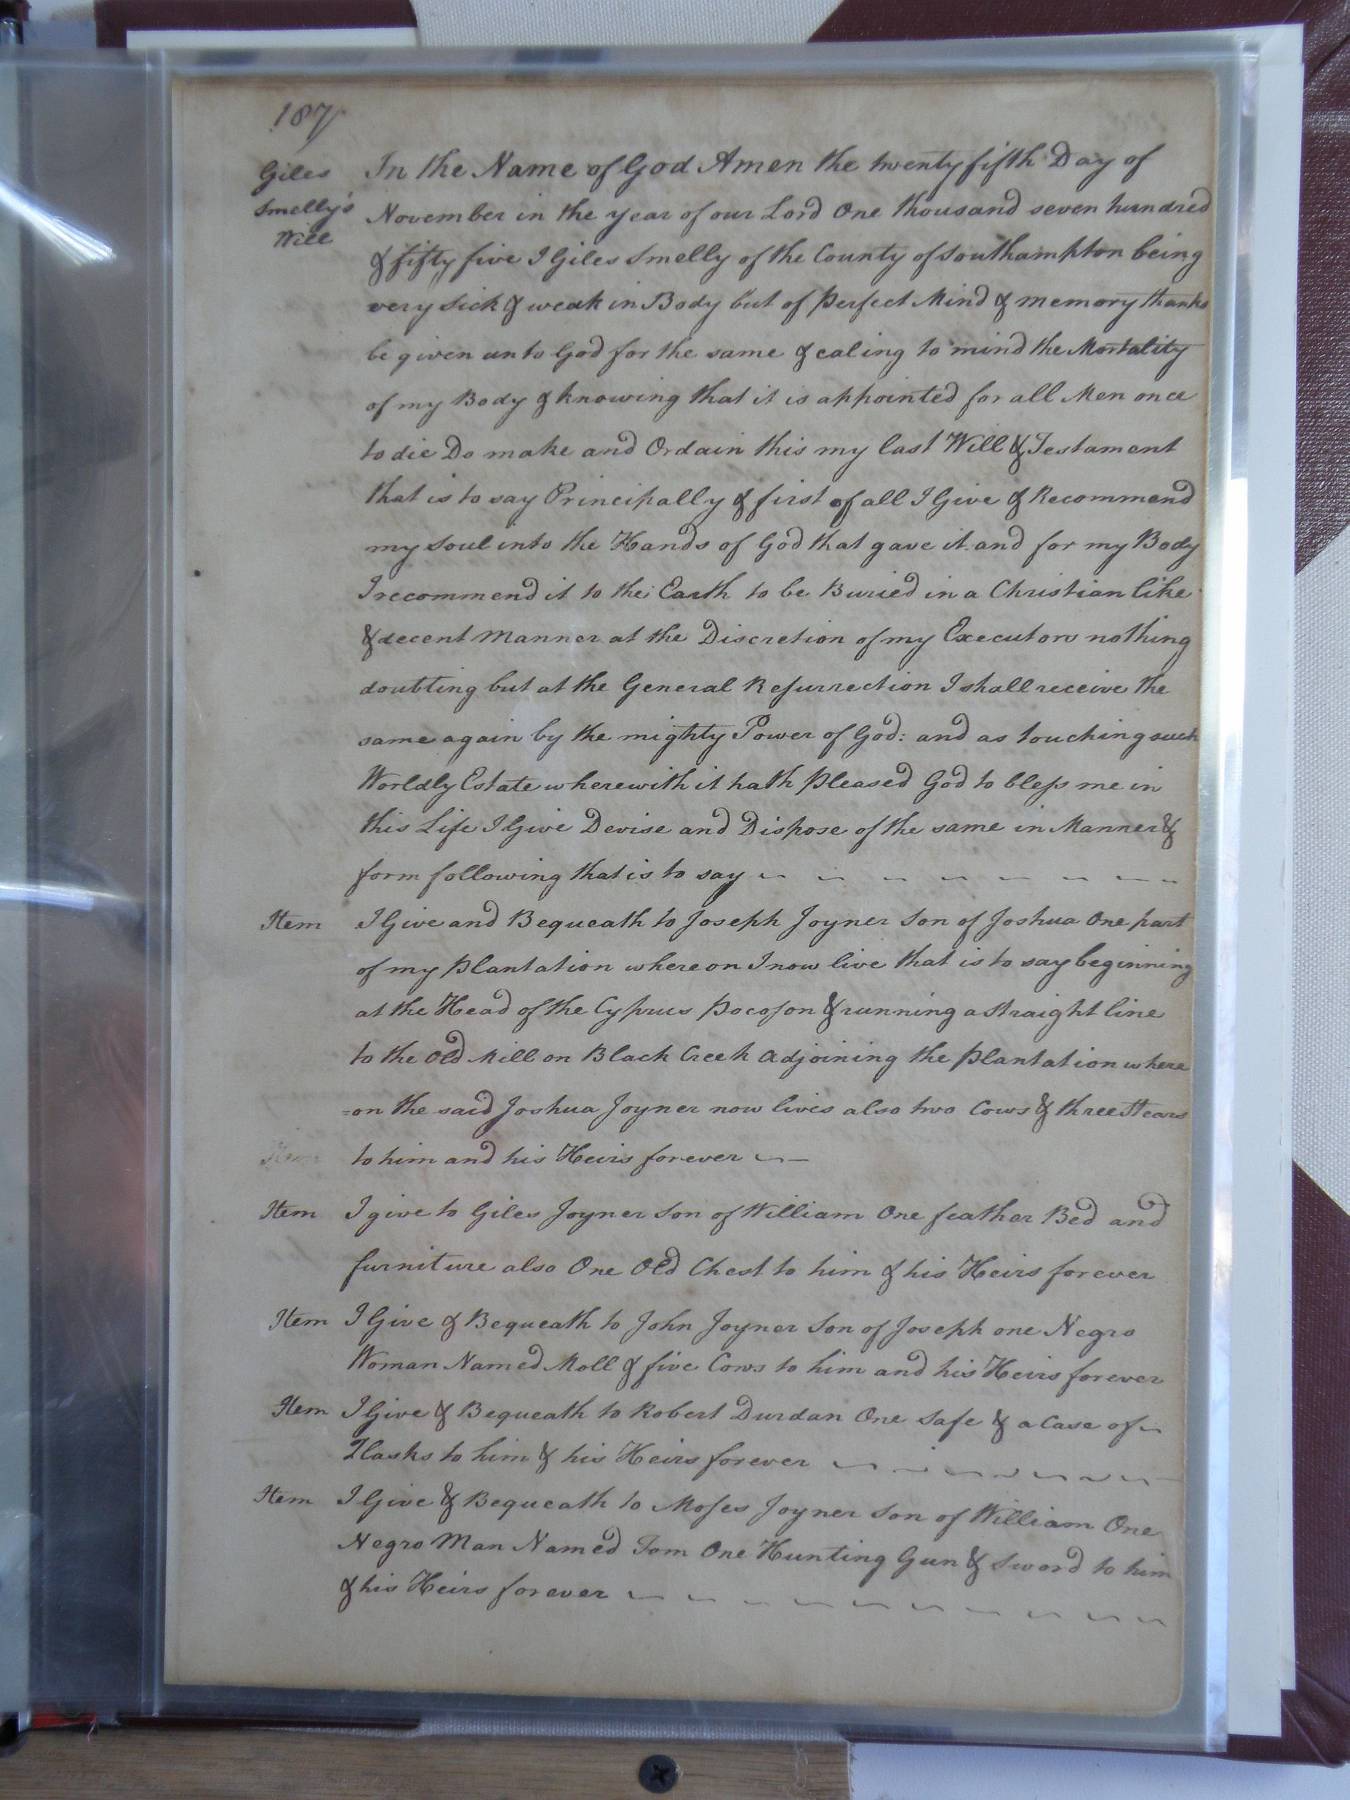 187
Giles
Smelly's
Will
In the Name of God Amen the twenty fifth Day of
November in the year of our Lord One thousand seven hundred
& fifty five I Giles Smelly of the County of Southampton being
very sick & weak in Body but of perfect Mind & memory thanks
be given unto God for the same & caling to mind the Mortality
of my Body & knowing that it is appointed for all Men once
to die Do make and Ordain this my last Will & Testament
that is to say Principally & first of all I Give & Recommend
my Soul into the Hands of God that gave it and for my Body
I recommend it to the Earth to be Buried in a Christian like
& decent Manner at the Discretion of my Executors nothing
doubting but at the General Resurrection I shall receive the
same again by the mighty Power of God: and as touching such
Worldly Estate wherewith it hath pleased God to bless me in
this Life I Give Devise and Dispose of the same in Manner &
form following that is to say
Item I Give and Bequeath to Joseph Joyner Son of Joshua One part
of my plantation whereon I now live that is to say beginning
at the Head of the Cyprus Pocoson & running a straight line
to the Old Mill on Black Creek adjoining the plantation where
=on the said Joshua Joyner now lives also two Cows & three Stears
Item to him and his Heirs forever
Item I give to Giles Joyner Son of William One feather Bed and
furniture also One Old Chest to him & his Heirs forever
Item I Give & Bequeath to John Joyner Son of Joseph one Negro
Woman Named Moll & five Cows to him and his Heirs forever
Item I Give & Bequeath to Robert Durdan One Safe & a Case of
Flasks to him & his Heirs forever
Item I Give & Bequeath to Moses Joyner Son of William One
Negro Man Named Tom One Hunting Gun & Sword to him
& his Heirs forever